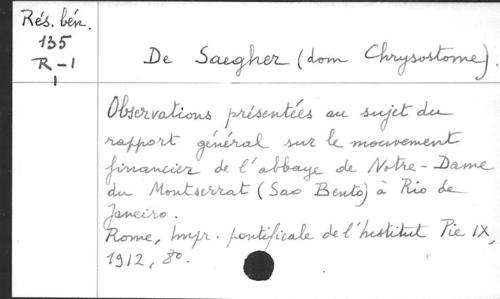 Rés. bén.
135
R-1
1
De Saegher (dom Chrysostome).
Observations présentées au sujet du
rapport général sur le mouvement
financier de l'abbaye de Notre-Dame
du Montserrat (Sao Bento) à Rio de
Janeiro.
Rome, Impr. pontificale de l'Institut Pie IX,
1912, 8o.